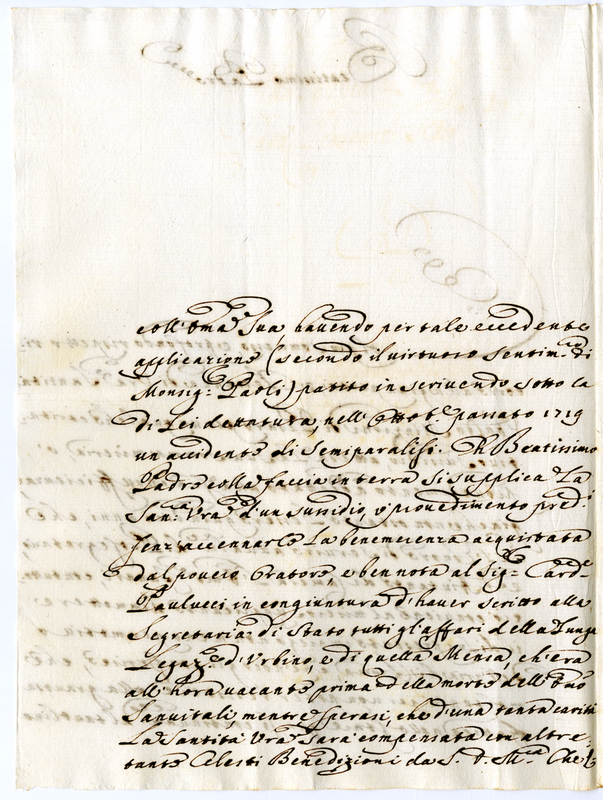 coll'Em.ᵃ Sua, havendo per tale eccedente
applicazione (secondo il virtuoso sentim.ᵗᵒ di
Monsig.ʳᵉ Paoli) patito in scrivendo sotto la
di Lei dettatura, nell'Ottob.ᵉ passato 1719
un accidente di semiparalisi. Ah Beatissimo
Padre colla faccia in terra si supplica La
San.ᵗᵃ Vra d'un sussidio, ò provedimento pred.ᵒ
senz'accennarle La benemerenza acquistata
dal povero Oratore, e ben nota al Sig.ʳ Card.ˡᵉ
Paulucci in congiuntura d'haver scritto alla
Segretaria di Stato tutti gl'affari della Lunga
Legaz.ⁿᵉ d'Urbino, e di quella Mensa, ch'era
all'hora vacante prima della morte dell'
Sanvitali, mentre sperasi, che d'una tanta carità
La Santità Vra sarà compensata con altre
tante Celesti Benedizioni da S. D. M.ᵃ Che